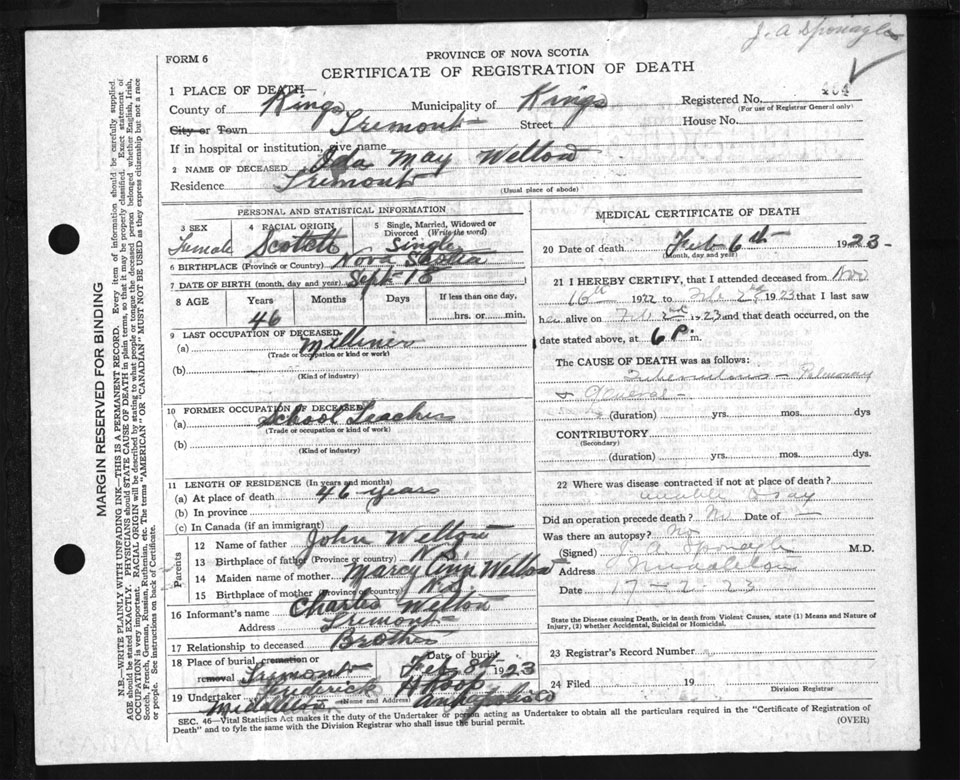 J. A Sponagle
FORM 6
PROVINCE OF NOVA SCOTIA
CERTIFICATE OF REGISTRATION OF DEATH
1 PLACE OF DEATH—
County of Kings Municipality of Kings Registered No.
(For use of Registrar General only)
City or Town Tremont Street House No.
If in hospital or institution, give name
2 NAME OF DECEASED Ida May Welton
Residence Tremont
(Usual place of abode)
PERSONAL AND STATISTICAL INFORMATION
3 SEX Female
4 RACIAL ORIGIN Scottch
5 Single, Married, Widowed or Divorced (Write the word) Single
6 BIRTHPLACE (Province or Country) Nova Scotia
7 DATE OF BIRTH (month, day and year) Sept 18
8 AGE Years Months Days If less than one day,
46 hrs. or min.
9 LAST OCCUPATION OF DECEASED
(a) Milliner
(Trade or occupation or kind of work)
(b)
(Kind of industry)
10 FORMER OCCUPATION OF DECEASED
(a) School Teacher
(Trade or occupation or kind of work)
(b)
(Kind of industry)
11 LENGTH OF RESIDENCE (In years and months)
(a) At place of death 46 years
(b) In province
(c) In Canada (if an immigrant)
Parents
12 Name of father John Welton
13 Birthplace of father (Province or country) N.S.
14 Maiden name of mother Marcy Ann Welton
15 Birthplace of mother (Province or country) N.S.
16 Informant's name Charles Welton
Address Tremont
17 Relationship to deceased Brother
18 Place of burial, cremation or removal Tremont Date of burial Feb 8th 1923
19 Undertaker Frederick
(Name and Address)
Middleton Annapolis Co
MEDICAL CERTIFICATE OF DEATH
20 Date of death Feb 6th 1923
(Month, day and year)
21 I HEREBY CERTIFY, that I attended deceased from Nov
16th 1922 to Feb 2nd 1923 that I last saw
her alive on Feb 2nd 1923 and that death occurred, on
date stated above, at 6 P. m.
The CAUSE OF DEATH was as follows:
Tuberculosis - Pulmonary
& General -
(duration) yrs. mos. dys
CONTRIBUTORY
(Secondary)
(duration) yrs. mos. dys.
22 Where was disease contracted if not at place of death?
unable to say
Did an operation precede death? No Date of —
Was there an autopsy? No
(Signed) J. A. Sponagle M.D.
Address Middleton
Date 17-2-23
State the Disease causing Death, or in death from Violent Causes, state (1) Means and Nature of
Injury, (2) whether Accidental, Suicidal or Homicidal.
23 Registrar's Record Number
24 Filed 19
Division Registrar
SEC. 46—Vital Statistics Act makes it the duty of the Undertaker or person acting as Undertaker to obtain all the particulars required in the "Certificate of Registration of
Death" and to fyle the same with the Division Registrar who shall issue the burial permit.
(OVER)
MARGIN RESERVED FOR BINDING
N.B.—WRITE PLAINLY WITH UNFADING INK—THIS IS A PERMANENT RECORD. Every item of information should be carefully supplied.
AGE should be stated EXACTLY. PHYSICIANS should STATE CAUSE OF DEATH in plain terms, so that it may be properly classified. Exact statement of
OCCUPATION is very important. RACIAL ORIGIN will be described by stating to what people or tongue the deceased person belonged whether English, Irish,
Scotch, French, German, Russian, Ruthenian, etc. The terms "AMERICAN" or "CANADIAN" MUST NOT BE USED as they express citizenship but not a race
or people. See instructions on back of Certificate.